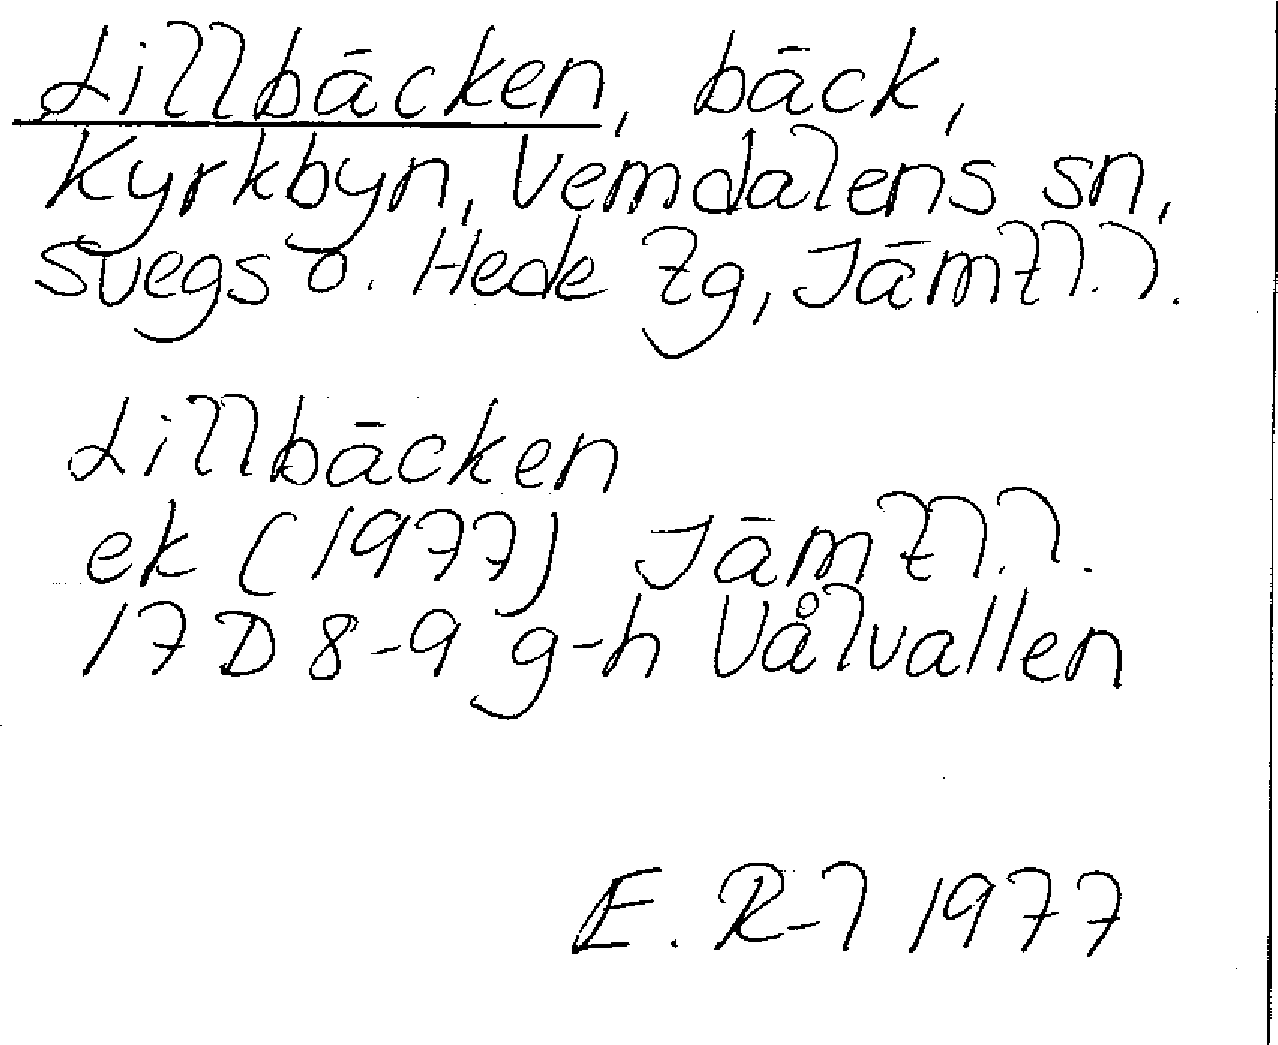 Lillbäcken, bäck,
Kyrkbyn, Vemdalens sn,
Svegs o. Hede tg, Jämtl. l.
Lillbäcken
ek (1977) Jämtl. l.
17 D 8-9 g-h Vålvallen
E. R-l 1977